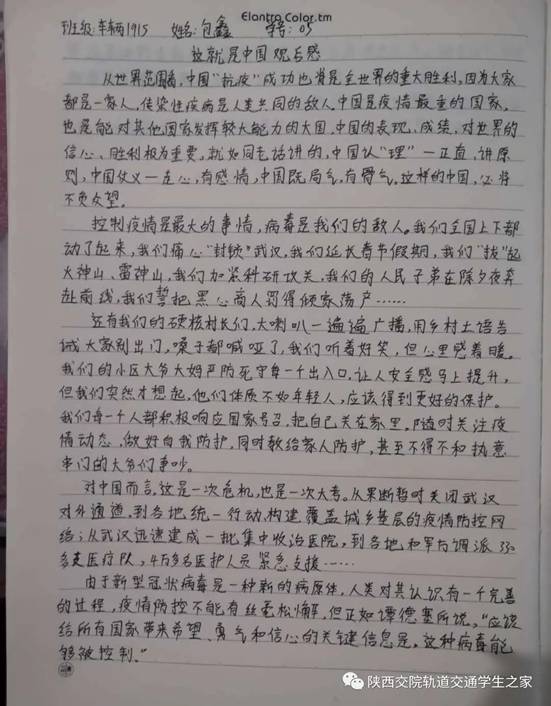 Elantra Color.tm
班级:车辆1915 姓名:包鑫 学号:05
这就是中国 观后感
从世界范围看,中国"抗疫"成功也将是全世界的重大胜利,因为大家
都是一家人,传染性疾病是人类共同的敌人。中国是疫情最重的国家,
也是能对其他国家发挥较大能力的大国。中国的表现、成绩,对世界的
信心、胜利极为重要,就如同老话讲的,中国认"理"一正直,讲原
则,中国仗义一在心,有感情,中国既局气,有骨气。这样的中国,必将
不负众望。
控制疫情是最大的事情,病毒是我们的敌人。我们全国上下都
动了起来,我们痛心"封锁"武汉,我们延长春节假期,我们"拔"起
火神山、雷神山,我们加紧科研攻关,我们的人民子弟在除夕夜奔
赴前线,我们誓把黑心商人罚得倾家荡产……
还有我们的硬核村长们,大喇叭一遍遍广播,用乡村土语告
诫大家别出门,嗓子都喊哑了,我们听着好笑,但心里感着暖。
我们的小区大爷大妈严防死守每一个出入口,让人安全感马上提升,
但我们突然才想起,他们体质不如年轻人,应该得到更好的保护。
我们每一个人都积极响应国家号召,把自己关在家里,随时关注疫
情动态,做好自我防护,同时教给家人防护,甚至不得不和执意
串门的大爷们争吵。
对中国而言,这是一次危机,也是一次大考。从果断暂时关闭武汉
对外通道,到各地统一行动,构建覆盖城乡基层的疫情防控网
络;从武汉迅速建成一批集中收治医院,到各地和军方调派330
多支医疗队,4万多名医护人员紧急支援……
由于新型冠状病毒是一种新的病原体,人类对其认识有一个完善
的过程,疫情防控不能有丝毫松懈,但正如谭德塞所说,"应该
给所有国家带来希望、勇气和信心的关键信息是,这种病毒能
够被控制。"
陕西交院轨道交通学生之家